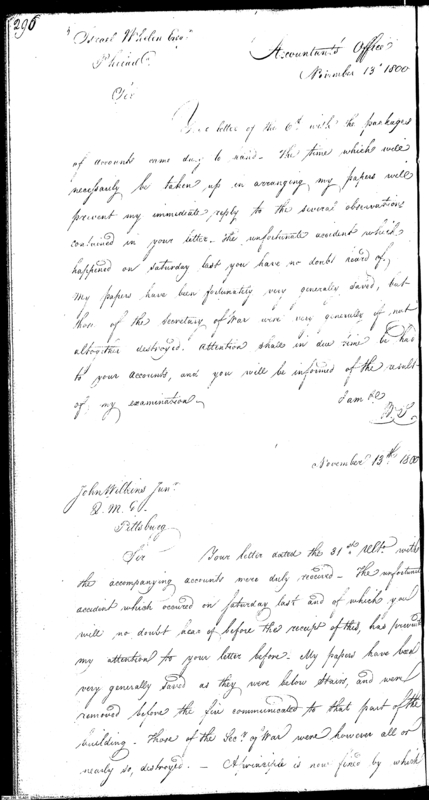 296
Israel Whelen Esqr.
Philad.
Accountants Office
November 13th 1800
Sir
Your letter of the 6th with the packages
of accounts came duly to hand. The time which will
necessarily be taken up in arranging my papers will
prevent my immediate reply to the several observations
contained in your letter. The unfortunate accident which
happened on Saturday last you have no doubt heard of.
My papers have been fortunately very generally saved, but
those of the Secretary of War were very generally if not
altogether destroyed. Attention shall in due time be had
to your accounts, and you will be informed of the result
of my examination.
I am &c
W. S.
November 13th 1800
John Wilkins Junr.
Q. M. G.
Pittsburg
Sir Your letter dated the 31st Ulto. with
the accompanying accounts were duly received. The unfortunate
accident which occured on Saturday last and of which you
will no doubt hear of before the receipt of this, has prevented
my attention to your letter before. My papers have been
very generally saved as they were below stairs, and were
removed before the fire communicated to that part of the
building. Those of the Secy. of War were however all or
nearly so, destroyed. A principle is now fixed by which